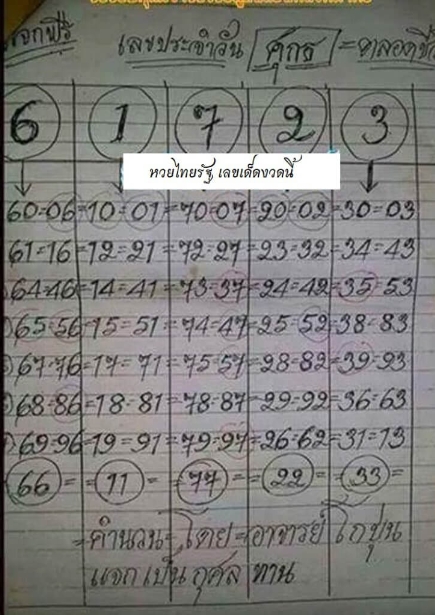 แจกฟรี เลขประจำวัน ศุกร์ = ตลอดชี
6 1 7 2 3
หวยไทยรัฐ เลขเด็ดงวดนี้
60=06=10=01=70=07=20=02=30=03
61=16=12=21=72=27=23=32=34=43
64=46=14=41=73=37=24=42=35=53
65=56=15=51=74=47=25=52=38=83
67=76=17=71=75=57=28=82=39=93
68=86=18=81=78=87=29=92=36=63
69=96=19=91=79=97=26=62=31=13
66 = 11 = 77 = 22 = 33 =
=คำนวน=โดย=อาจารย์ โกปุน
แจกเป็นกุศลทาน